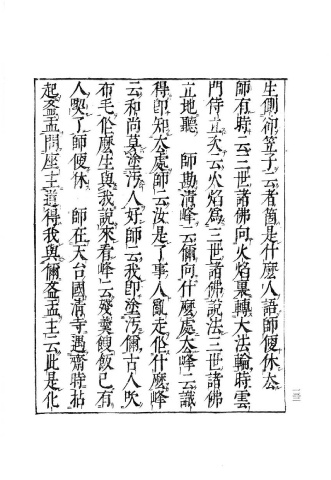 生側卻笠子云者箇是什麼人語師便休玄
師有時云三世諸佛向火焰裏轉大法輪時雲
門侍立次云火焰爲三世諸佛說法三世諸佛
立地聽　師勘清峰云爾向什麼處去峰云識
得即知去處師云汝是了事人亂走作什麼峰
云和尚莫塗汚人好師云我即塗汚爾古人吹
布毛作麼生與我說來看峰云殘羹餿飯已有
人喫了師便休　師在天台國清寺遇齋時拈
起盋盂問座主道得我與爾盋盂主云此是化